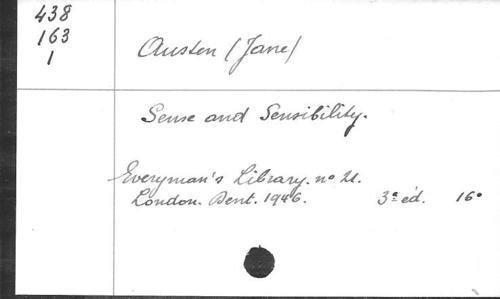 438
163
1
Austen (Jane)
Sense and Sensibility.
Everyman's Library. no 21.
London. Dent. 1946. 3e éd. 16°